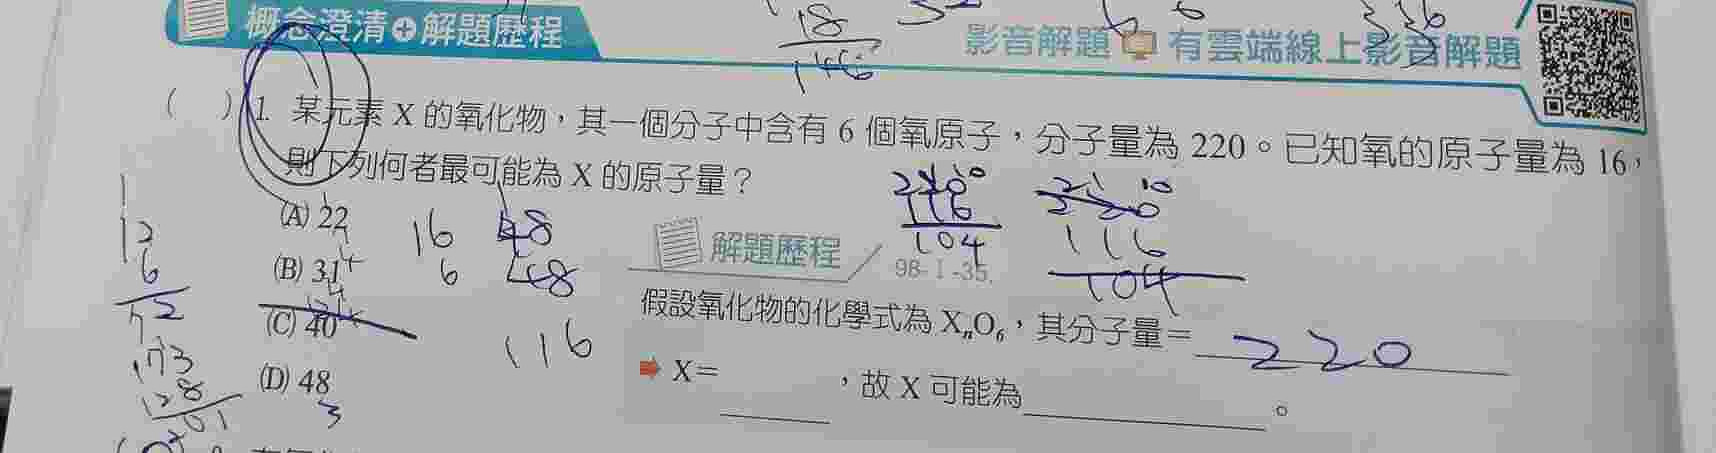 概念澄清+解題歷程
影音解題 有雲端線上影音解題
18
146
( ) 1. 某元素 X 的氧化物，其一個分子中含有 6 個氧原子，分子量為 220。已知氧的原子量為 16，
則下列何者最可能為 X 的原子量？
(A) 22
(B) 31
(C) 40
(D) 48
3
12
6
72
173
128
16
6
48
116
220
116
104
220
116
104
解題歷程
98-I-35.
假設氧化物的化學式為 XₙO₆，其分子量＝ 220
X＝ ，故 X 可能為 。